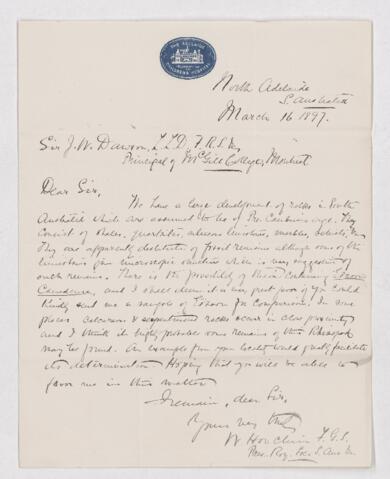 THE ADELAIDE
CHILDREN'S HOSPITAL
North Adelaide
S. Australia
March 16 1897.
Sir J. W. Dawson, L.L.D., F.R.S. &c
Principal of McGill College, Montreal
Dear Sir,
We have a large development of rocks in South
Australia which are assumed to be of Pre Cambrian age. They
consist of shales, quartzites, siliceous limestones, marbles, schists, &c
They are apparently destitute of fossil remains although some of the
limestones give microscopic sections which is very suggestive of
such remains. There is the possibility of these containing Eozoon
Canadense, and I shall deem it a very great favor if you could
kindly send me a sample of Eozoon for comparison. In some
places calcareous & serpentinous rocks occur in close proximity
and I think it highly probable some remains of this Rhizopod
may be found. An example from your locality would greatly facilitate
its determination. Hoping that you will be able to
favor me in this matter
I remain, dear Sir,
Yours very truly
W Howchin F.G.S.
Roy. Soc. S. Aus &c